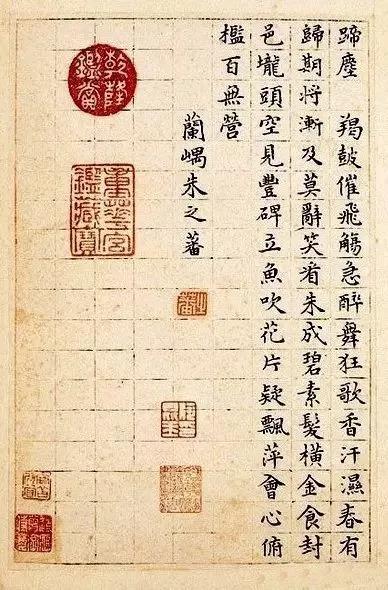 蹄塵　羯鼓催飛觴急醉舞狂歌香汗濕春有
歸期將漸及莫辭笑看朱成碧素髮橫金食封
邑壠頭空見豐碑立魚吹花片疑飄萍會心俯
檻百無營
蘭嵎朱之蕃
乾隆
鑑賞
重華宮
鑑藏寶
之蕃